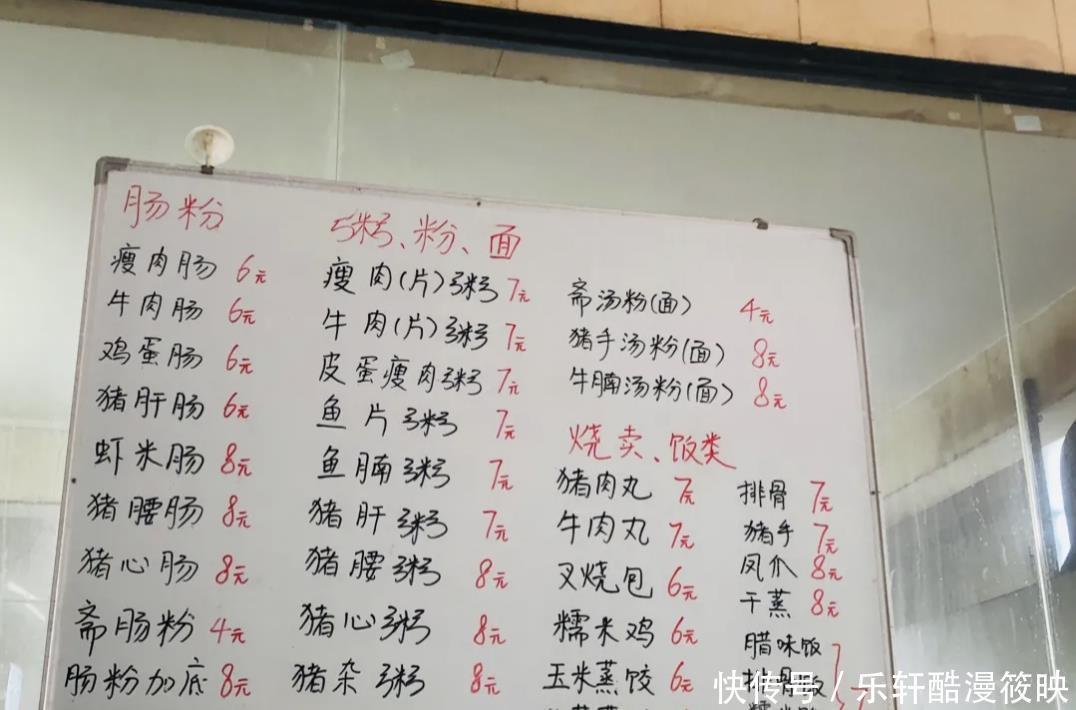 肠粉
瘦肉肠 6元
牛肉肠 6元
鸡蛋肠 6元
猪肝肠 6元
虾米肠 8元
猪腰肠 8元
猪心肠 8元
斋肠粉 4元
肠粉加底 8元
粥、粉、面
瘦肉(片)粥 7元
牛肉(片)粥 7元
皮蛋瘦肉粥 7元
鱼片粥 7元
鱼腩粥 7元
猪肝粥 7元
猪腰粥 8元
猪心粥 8元
猪杂粥 8元
斋汤粉(面) 4元
猪手汤粉(面) 8元
牛腩汤粉(面) 8元
烧卖、饭类
猪肉丸 7元
牛肉丸 7元
叉烧包 6元
糯米鸡 6元
玉米蒸饺 6元
排骨 7元
猪手 7元
凤爪 8元
干蒸 8元
腊味饭
快传号/乐轩酷漫筱映